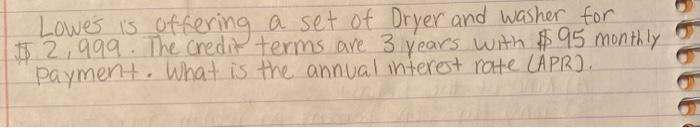 Lowes is offering a set of Dryer and washer for
$ 2,999. The credit terms are 3 years with $95 monthly
payment. What is the annual interest rate (APR).